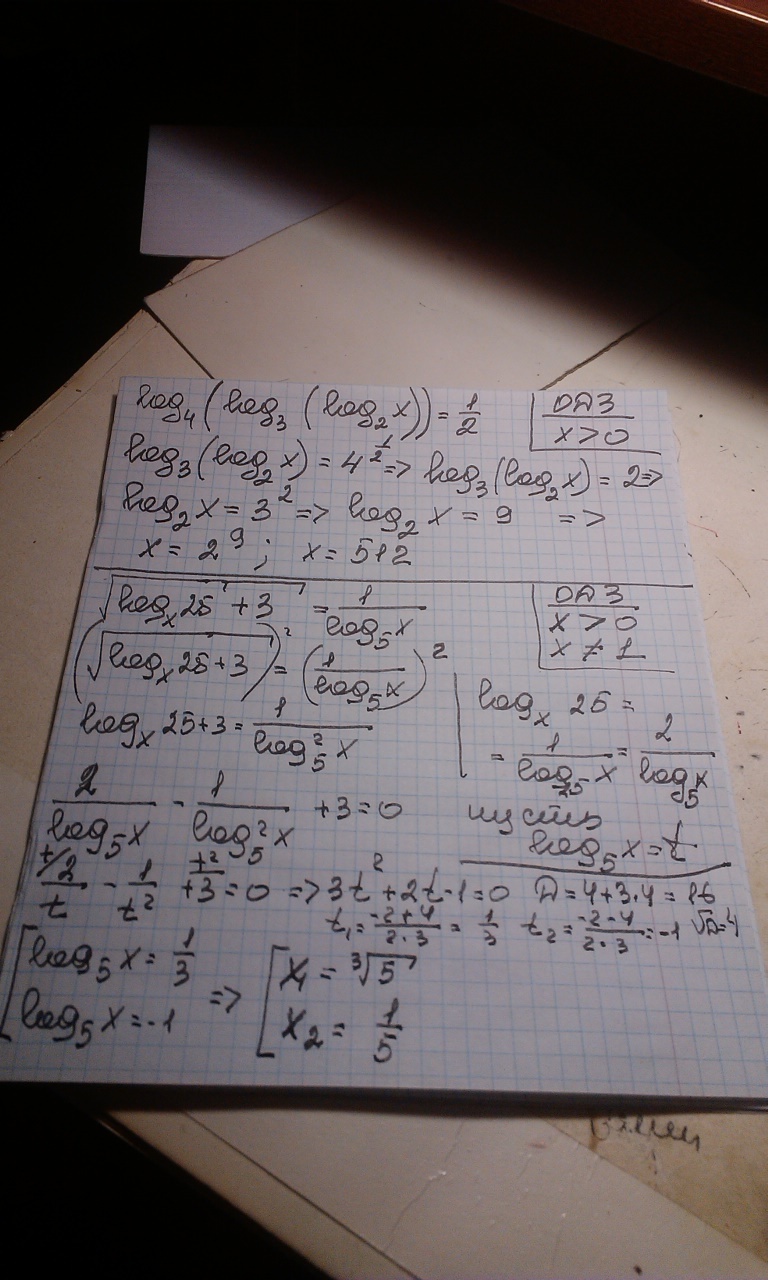 log₄(log₃(log₂x)) = 1/2
ОДЗ
x > 0
log₃(log₂x) = 4^(1/2) => log₃(log₂x) = 2 =>
log₂x = 3² => log₂x = 9 =>
x = 2⁹; x = 512
√(logₓ25 + 3) = 1/log₅x
ОДЗ
x > 0
x ≠ 1
(√(logₓ25 + 3))² = (1/log₅x)²
logₓ25 + 3 = 1/log₅²x
logₓ 25 =
= 1/log₂₅x = 2/log₅x
2/log₅x - 1/log₅²x + 3 = 0
пусть
log₅x = t
2/t - 1/t² + 3 = 0 => 3t² + 2t - 1 = 0 D = 4 + 3·4 = 16
t₁ = (-2+4)/(2·3) = 1/3 t₂ = (-2-4)/(2·3) = -1 √D = 4
[log₅x = 1/3
log₅x = -1
=> [x₁ = ³√5
x₂ = 1/5